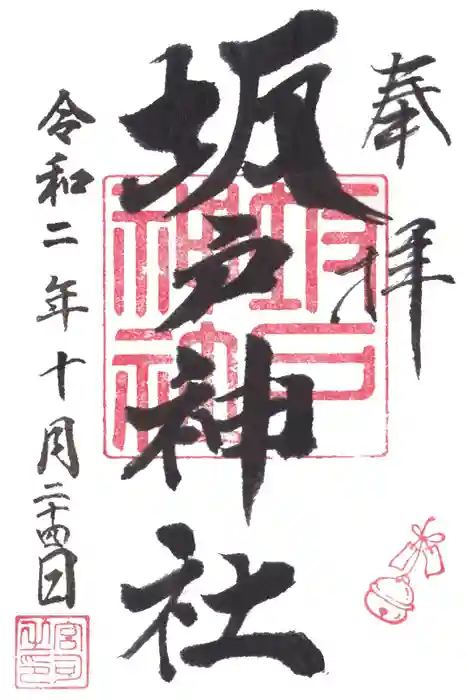 奉拝
坂戸神社
令和二年十月二十四日
坂戸神社
宮司之印